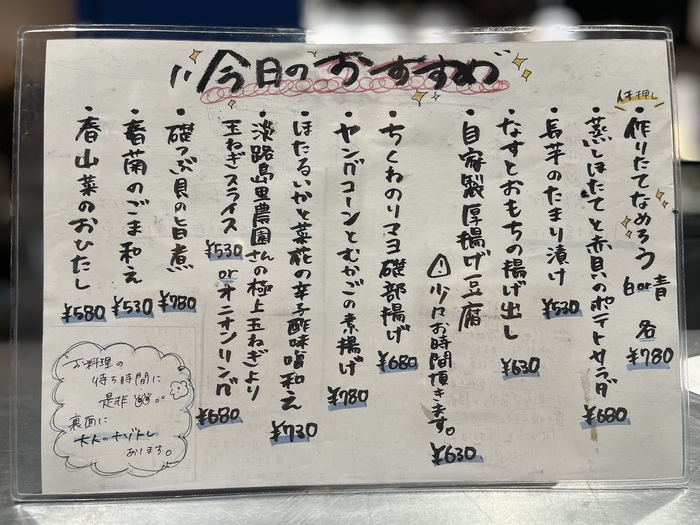 今日のおすすめ
イチ押し
・作りたてなめろう 白or青 各 ¥780
・蒸しほたてと赤貝のポテトサラダ ¥680
・長芋のたまり漬け ¥530
・なすとおもちの揚げ出し ¥630
・自家製厚揚げ豆腐
⚠少々お時間頂きます。 ¥630
・ちくわのりマヨ磯部揚げ ¥680
・ヤングコーンとむかごの素揚げ ¥780
・ほたるいかと菜花の辛子酢味噌和え ¥730
・淡路島里農園さんの極上玉ねぎより
玉ねぎスライス ¥530 or オニオンリング ¥680
・磯つぶ貝の旨煮 ¥780
・春菊のごま和え ¥530
・春山菜のおひたし ¥580
お料理の
待ち時間に
是非
裏面に
大人のナゾトレ
あります。